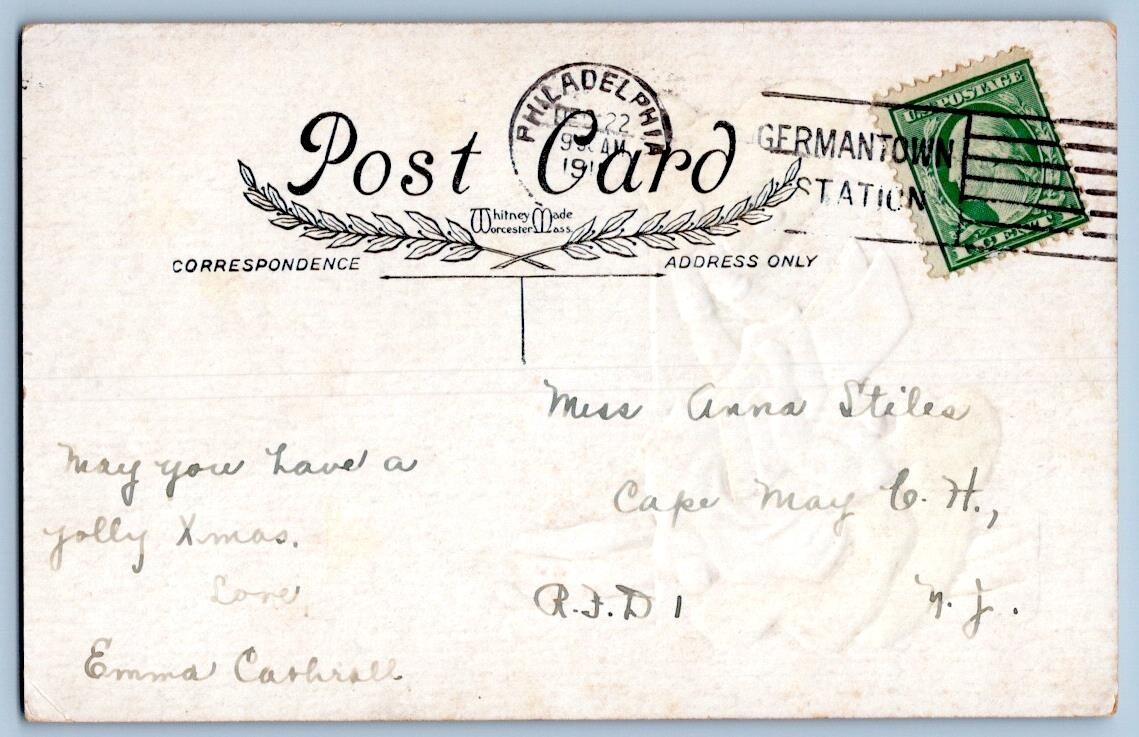 PHILADELPHIA
DEC 22
AM
GERMANTOWN
STATION
U.S. POSTAGE
Post Card
Whitney Made
Worcester Mass.
CORRESPONDENCE
ADDRESS ONLY
Miss Anna Stiles
Cape May C. H.,
R.F.D 1 N. J.
May you have a
jolly Xmas.
Love
Emma Cathrall